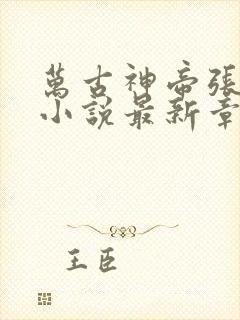 萬古神帝張
小說最新章
王臣